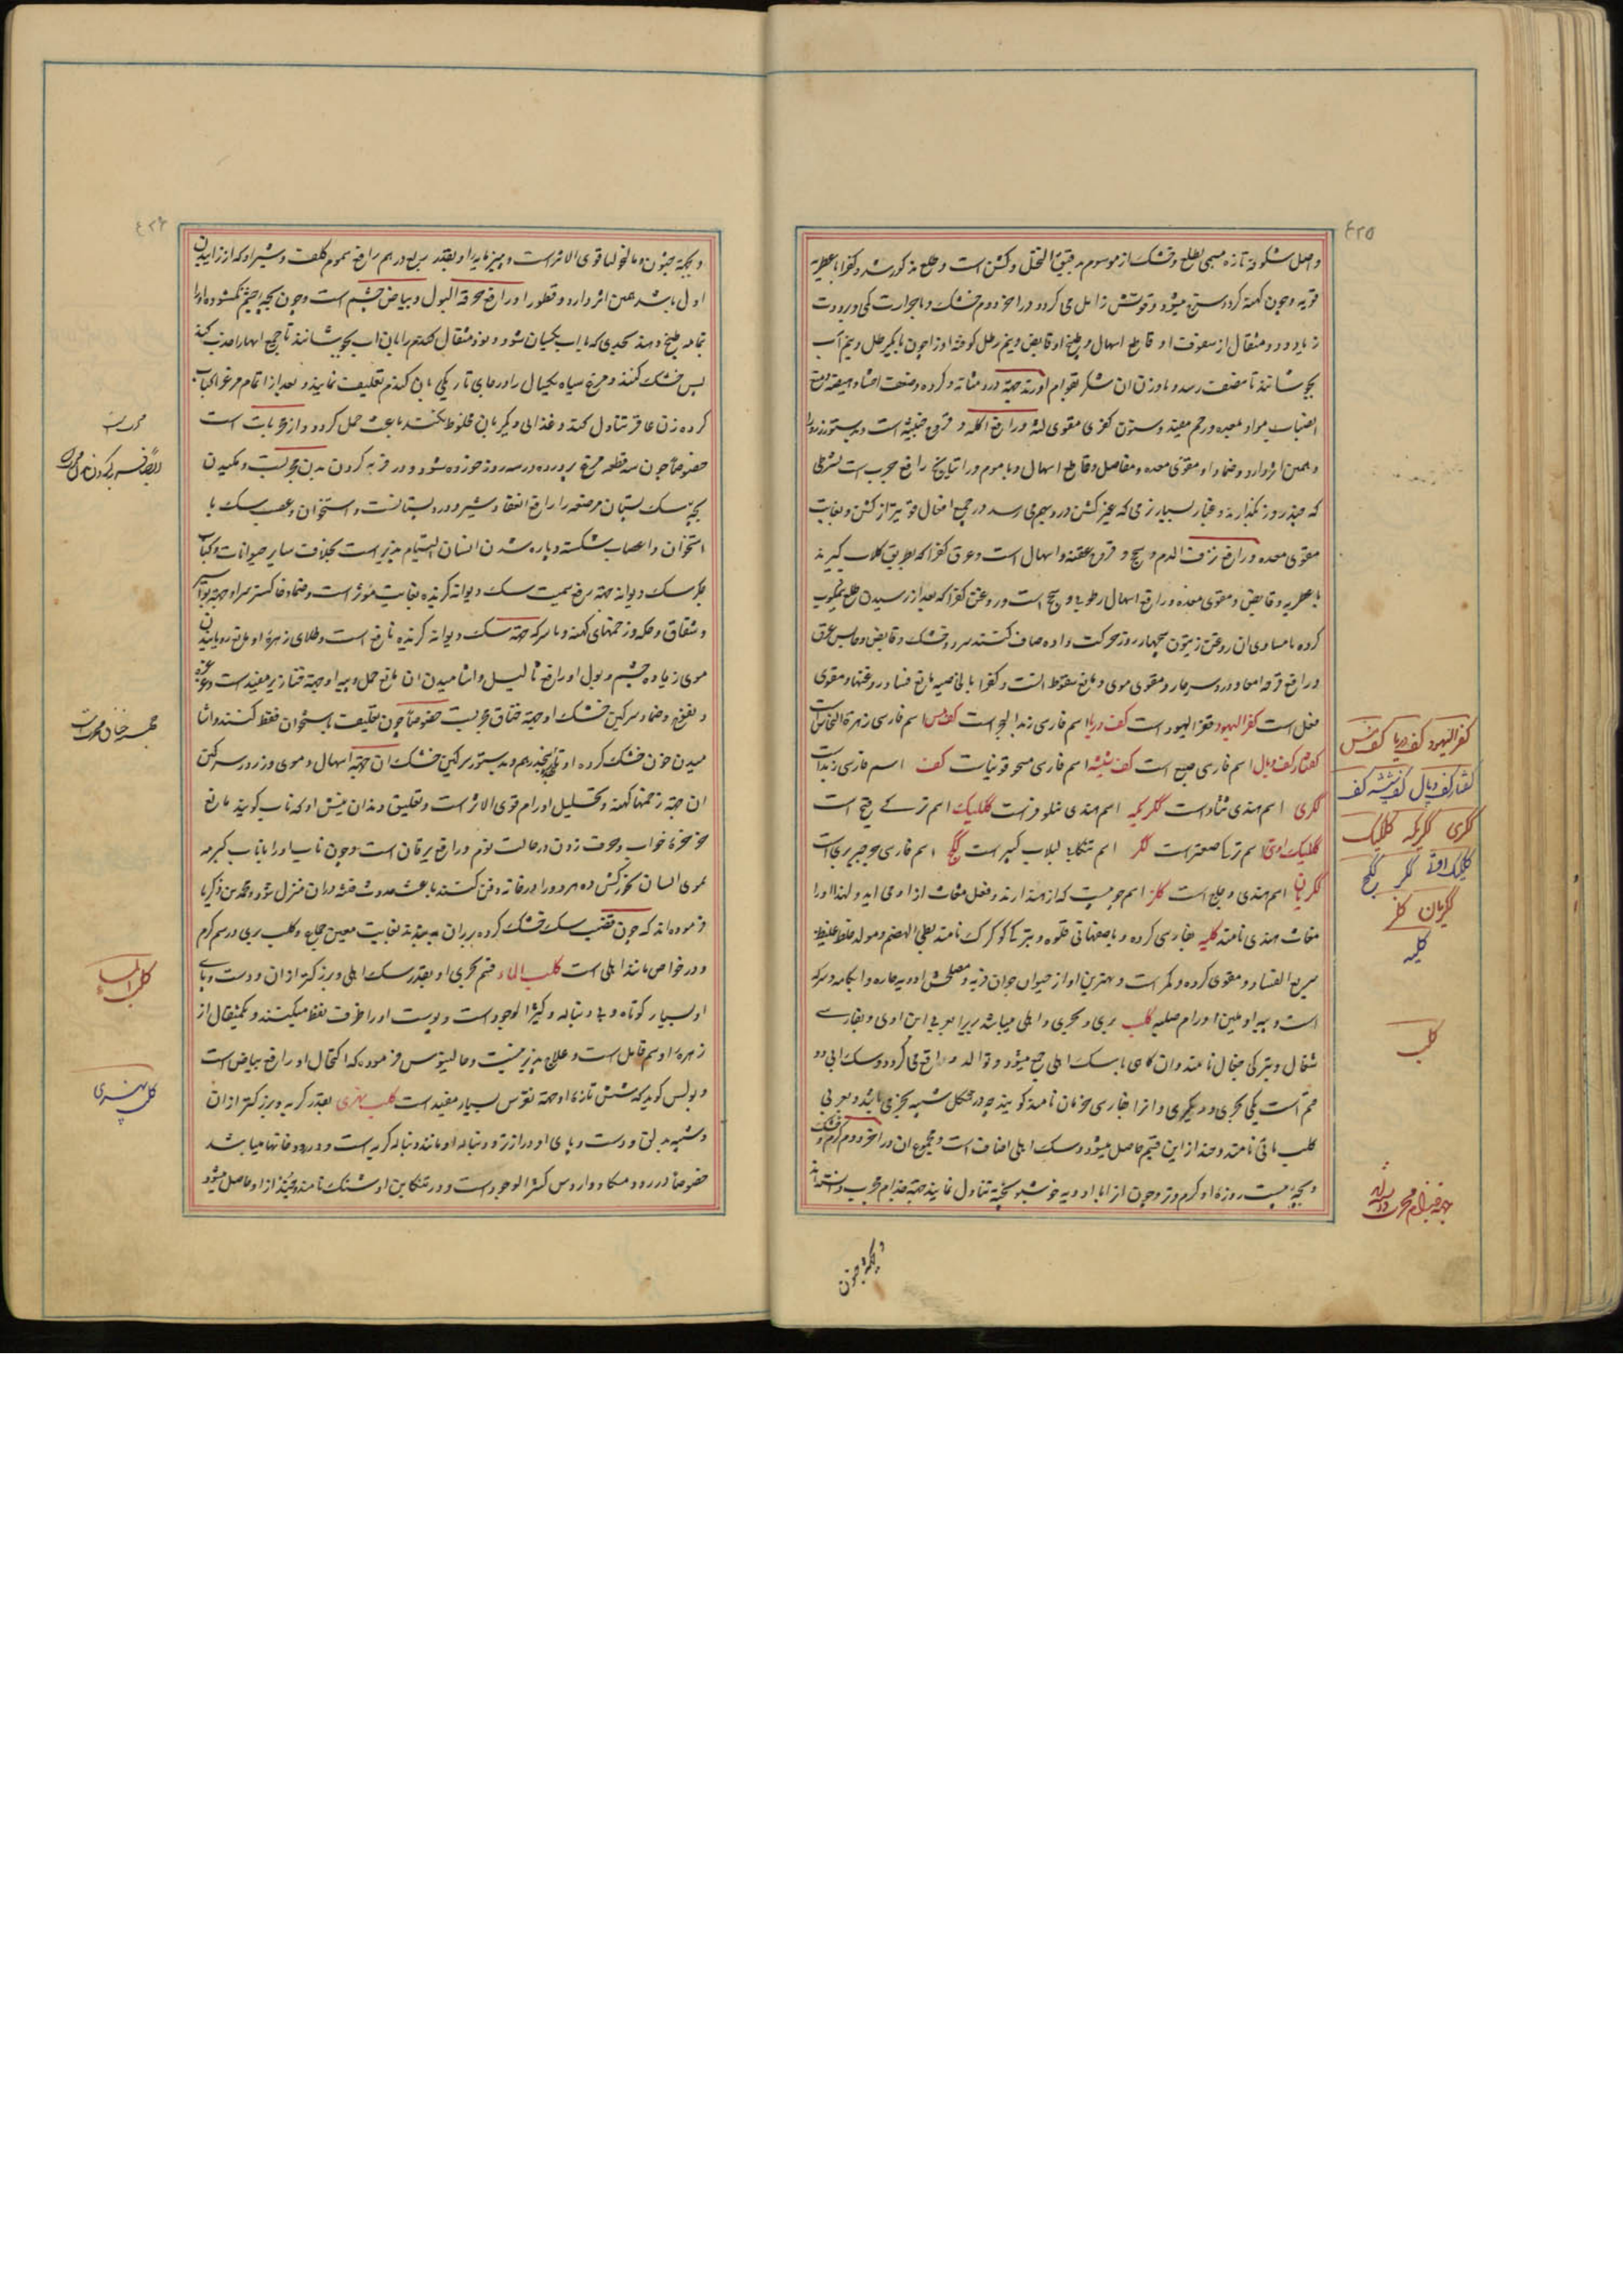 ۴۲۵
واصل شکوفهٔ تازه مسمی بطلع و خشک از موسوم بدقیق النخل و کشن است و طلع مذکور شد و کفرا با عطریه
قویه و چون کهنه گردد مسترخ میشود و قوتش زایل می گردد در آخر دوم خشک و با حرارت کمی و برودت
زیاد و دو مثقال از سفوف او قاطع اسهال و طبیخ او قابض و نیم رطل کوفته او را چون با یکرطل و نیم آب
بجوشانند تا بنصف رسد و با وزن آن شکر بقوام آورند جهة درد مثانه و گرده و ضعف احشا و
انصباب مواد بمعده و رحم مفید و سنون کفری مقوی لثه و رافع آکله و قروح خبیثه است
و همین اثر دارد و ضماد او مقوی معده و مفاصل و قاطع اسهال و با موم و راتیانج رافع جرب است بشرطی
که چند روز بگذارند و غبار بسیار نرمی که عیر کشن در و بهم می رسد در جمیع افعال قویتر از کشن و بغایت
مقوی معده و رافع نزف الدم و سحج و قروح عفنه و اسهال است و عرق کفرا که بطریق گلاب گیرند
با عطریه و قابض و مقوی معده و رافع اسهال رطوبی و سحج است و روغن کفرا که بعد از رسیدن طلع نیمکوب
کرده با مساوی آن روغن زیتون چهار روز حرکت داده صاف کنند سرد و خشک و قابض و حابس عرق
و رافع قرحه امعا و درد سر حار و مقوی موی و مانع سقوط آنست و کفرا بالخاصیه مانع فساد روغنها و مقوی
فعل است کفر الیهود قفر الیهود است کف دریا اسم فارسی زبد البحر است کف مس اسم فارسی زهرة النحاس است
کفتار کفت دبال اسم فارسی ضبع است کف شیشه اسم فارسی مسحوقونیات کفت اسم فارسی زبد است
ککری اسم هندی قثاء است ککریکه اسم هندی نیلوفر است ککلیک اسم ترکی قبج است
ککلیک اوتی اسم ترکی صعتر است ککر اسم تنکابنی لبلاب کبیر است ککج اسم فارسی جرجیر بری است
ککریان اسم هندی و جلج است کلز اسم چوبیست که از هند آرند و فعل مغاث از او می آید و لهذا او را
مغاث هندی نامند کلیه بفارسی گرده و باصفهانی قلوه و بترکی بوکرک نامند بطی الهضم و مولد خلط غلیظ
سریع الفساد و مقوی گرده و کمر است و بهترین او از حیوان جوان فربه و مصلحش ادویه حاره و آبکامه و سرکه
است و پیه او ملین اورام صلبه کلب بری و بحری و اهلی میباشد بری را بعربی ابن اوی و بفارسی
شغال و بترکی چغال نامند و آن گاهی با سک اهلی جمع میشود و توالد واقع می گردد و سک آبی دو
قسم است یکی بحری و دیگری و آنرا بفارسی نامند گویند چه در شکل شبیه بخزی باشد و بعربی
کلب مائی نامند و چند از این قسم حاصل میشود و سک اهلی اصناف است و مجموع آن در آخر دوم گرم و خشک
و بچهٔ بیست روزهٔ او گرم و تر و چون از او با ادویه خوشبو پخته تناول نمایند جهة جذام مجرب دانسته‌اند
کفر الیهود کف دریا کف مس
کفتار کفت دبال کف شیشه کف
ککری ککریکه ککلیک
ککلیک اوتی ککر ککج
ککریان کلز
کلیه
کلب
جهة جذام مجرب دانسته
و بجهة جنون
۴۲۶
و بجهة جنون و مالیخولیا قوی الاثر است و پنیرمایهٔ او بقدر ربع درهم رافع سموم کلف و شیر او که از زاییدن
اول باشد همین اثر دارد و قطور او رافع حرقة البول و بیاض چشم است و چون بچهٔ چشم نگشوده او را
تمام طبخ دهند بحدی که با آب یکسان شود و نود مثقال گندم را با آن آب بجوشانند تا جمیع آبها را جذب کند
پس خشک کنند و مرغ سیاه یکساله را در جای تاریکی بآن گندم تعلیف نمایند و بعد از اتمام مرغ را کباب
کرده زن عاقر تناول کند و غذای دیگر بآن مخلوط نکند باعث حمل گردد و از مجربات است
خصوصاً چون سه قطعه مرغ پرورده در سه روز خورده شود و در فربه کردن بدن مجربست و مکیدن
بچهٔ سک پستان مرضعه را رافع انعقاد شیر و درد پستانست و استخوان و عصب سک با
استخوان و اعصاب شکسته و پاره شدن انسان التیام پذیر است بخلاف سایر حیوانات و کباب
جگر سک دیوانه جهة رفع سمیت سک دیوانه گزیده بغایت مؤثر است و ضماد خاکستر سر او جهة بواسیر
و شقاق و حکه و زخمهای کهنه و با سرکه جهة سک دیوانه گزیده نافع است و طلای زهرهٔ او مانع روییدن
موی زیاده چشم و بول او رافع ثالیل و آشامیدن آن مانع حمل و پیه او جهة خنازیر مفید است
و نفوخ و ضماد سرگین خشک او جهة خناق مجربست خصوصاً چون تعلیف باستخوان فقط کنند و آشا
میدن خون خشک کرده او بقدر نیم درهم و بدستور سرگین خشک آن جهة اسهال و موی و زرور سرگین
آن جهة زخمها کهنه و تحلیل اورام قوی الاثر است و تعلیق دندان نیش او که ناب گویند مانع
خرخرهٔ خواب و حرف زدن در حالت نوم و رافع یرقان است و چون ناب او را با ناب گربه
بموی انسان بخور کنند و هر دو را در خانه دفن کنند باعث حدوث فتنه در آن منزل شود و محمد بن ذکریا
فرموده اند که چون قضیب سک خشک کرده بر ران به بندند بغایت معین جماع و کلب بری در سیم گرم
و در خواص مانند اهلی است کلب الماء قسم بحری او بقدر سک اهلی و بزرگتر از آن و دست و پای
او بسیار کوتاه و بی دنباله و کثیر الوجود است و پوست او را ظرف نفط میکنند و یکمثقال از
زهرهٔ او سم قاتل است و علاج پذیر نیست و جالینوس فرموده که اکتحال او رافع بیاض است
و بولس گوید که شش تازهٔ او جهة نقرس بسیار مفید است کلب نهری بقدر گربه و بزرگتر از آن
و شبیه بدلق و دست و پای او درازتر و دنباله او مانند دنباله گربه است و در رودخانها میباشد
خصوصاً در رود مکا و وارروس کثیر الوجود است و در تنکابن او شنک نامند و جند از او حاصل میشود
مجربست
ایضاً فربه کردن بدن مجرب
جهة خناق مجربست
کلب الماء
کلب نهری